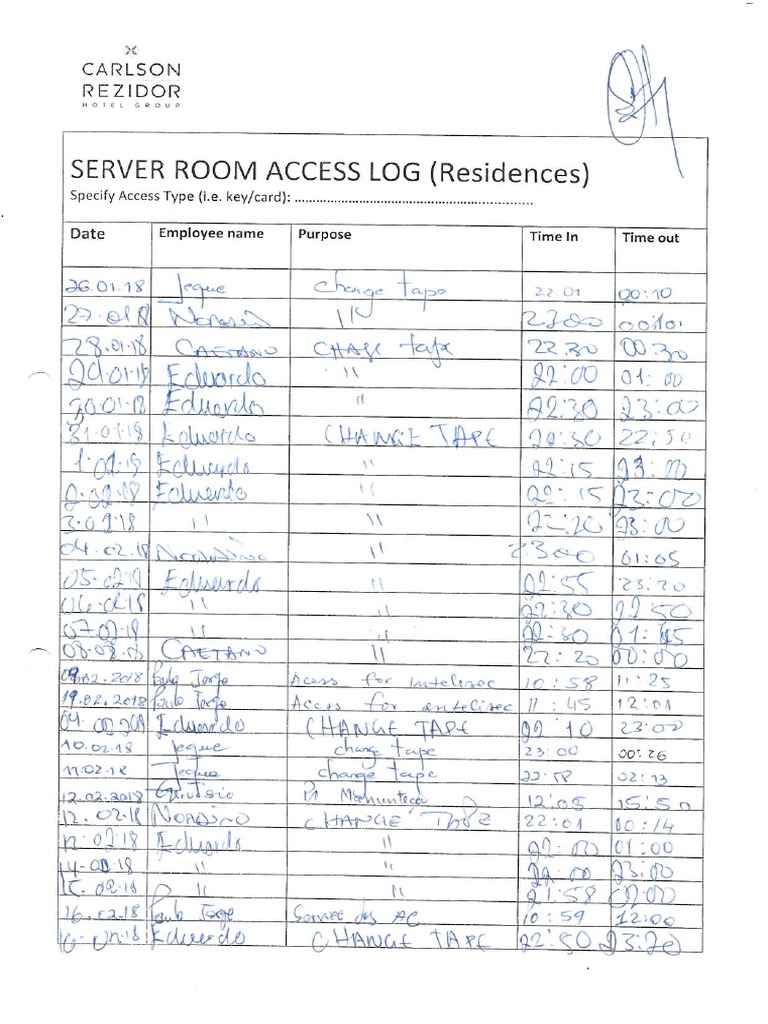 CARLSON
REZIDOR
HOTEL GROUP
SERVER ROOM ACCESS LOG (Residences)
Specify Access Type (i.e. key/card): ....................................................................
Date Employee name Purpose Time In Time out
26.01.18 Jeque change tape 22:01 00:10
27.01.8 23:00 00:10
28.01.18 CAETANO CHAGE tape 22:30 00:30
29.01.18 Eduardo " 22:00 01:00
30.01.18 Eduardo " 22:30 23:00
31.01.18 Eduardo CHANGE TAPE 22:50
1.02.18 Eduardo " 22:15 23:
2.02.18 Eduardo " 22:15 23:00
3.02.18 " " 23:00
04.02.18 " 2300 01:05
05.02.18 Eduardo " 22:55 23:20
06.02.18 " " 22:30 22:50
07.02.18 " " 22:30 01:45
08.02.18 CAETANO " 22:20 00:00
09.02.2018 Paulo Jorge Acess for intelisec 10:58 11:25
19.02.2018 Paulo Jorge Acess for entelisec 11:45 12:01
Eduardo CHANGE TAPE 22:10 23:00
10.02.18 Jeque change tape 23:00 00:26
11.02.18 Jeque change tape 22:58 02:13
12.02.2018 12:05 15:50
12.02.18 NORDINO CHANGE 22:01 00:14
Eduardo " 22:00 01:00
" " 22:00 23:00
15.02.18 " " 21:58
16.02.18 Paulo Jorge AC 10:59 12:00
Eduardo CHANGE TAPE 22:50 23:20